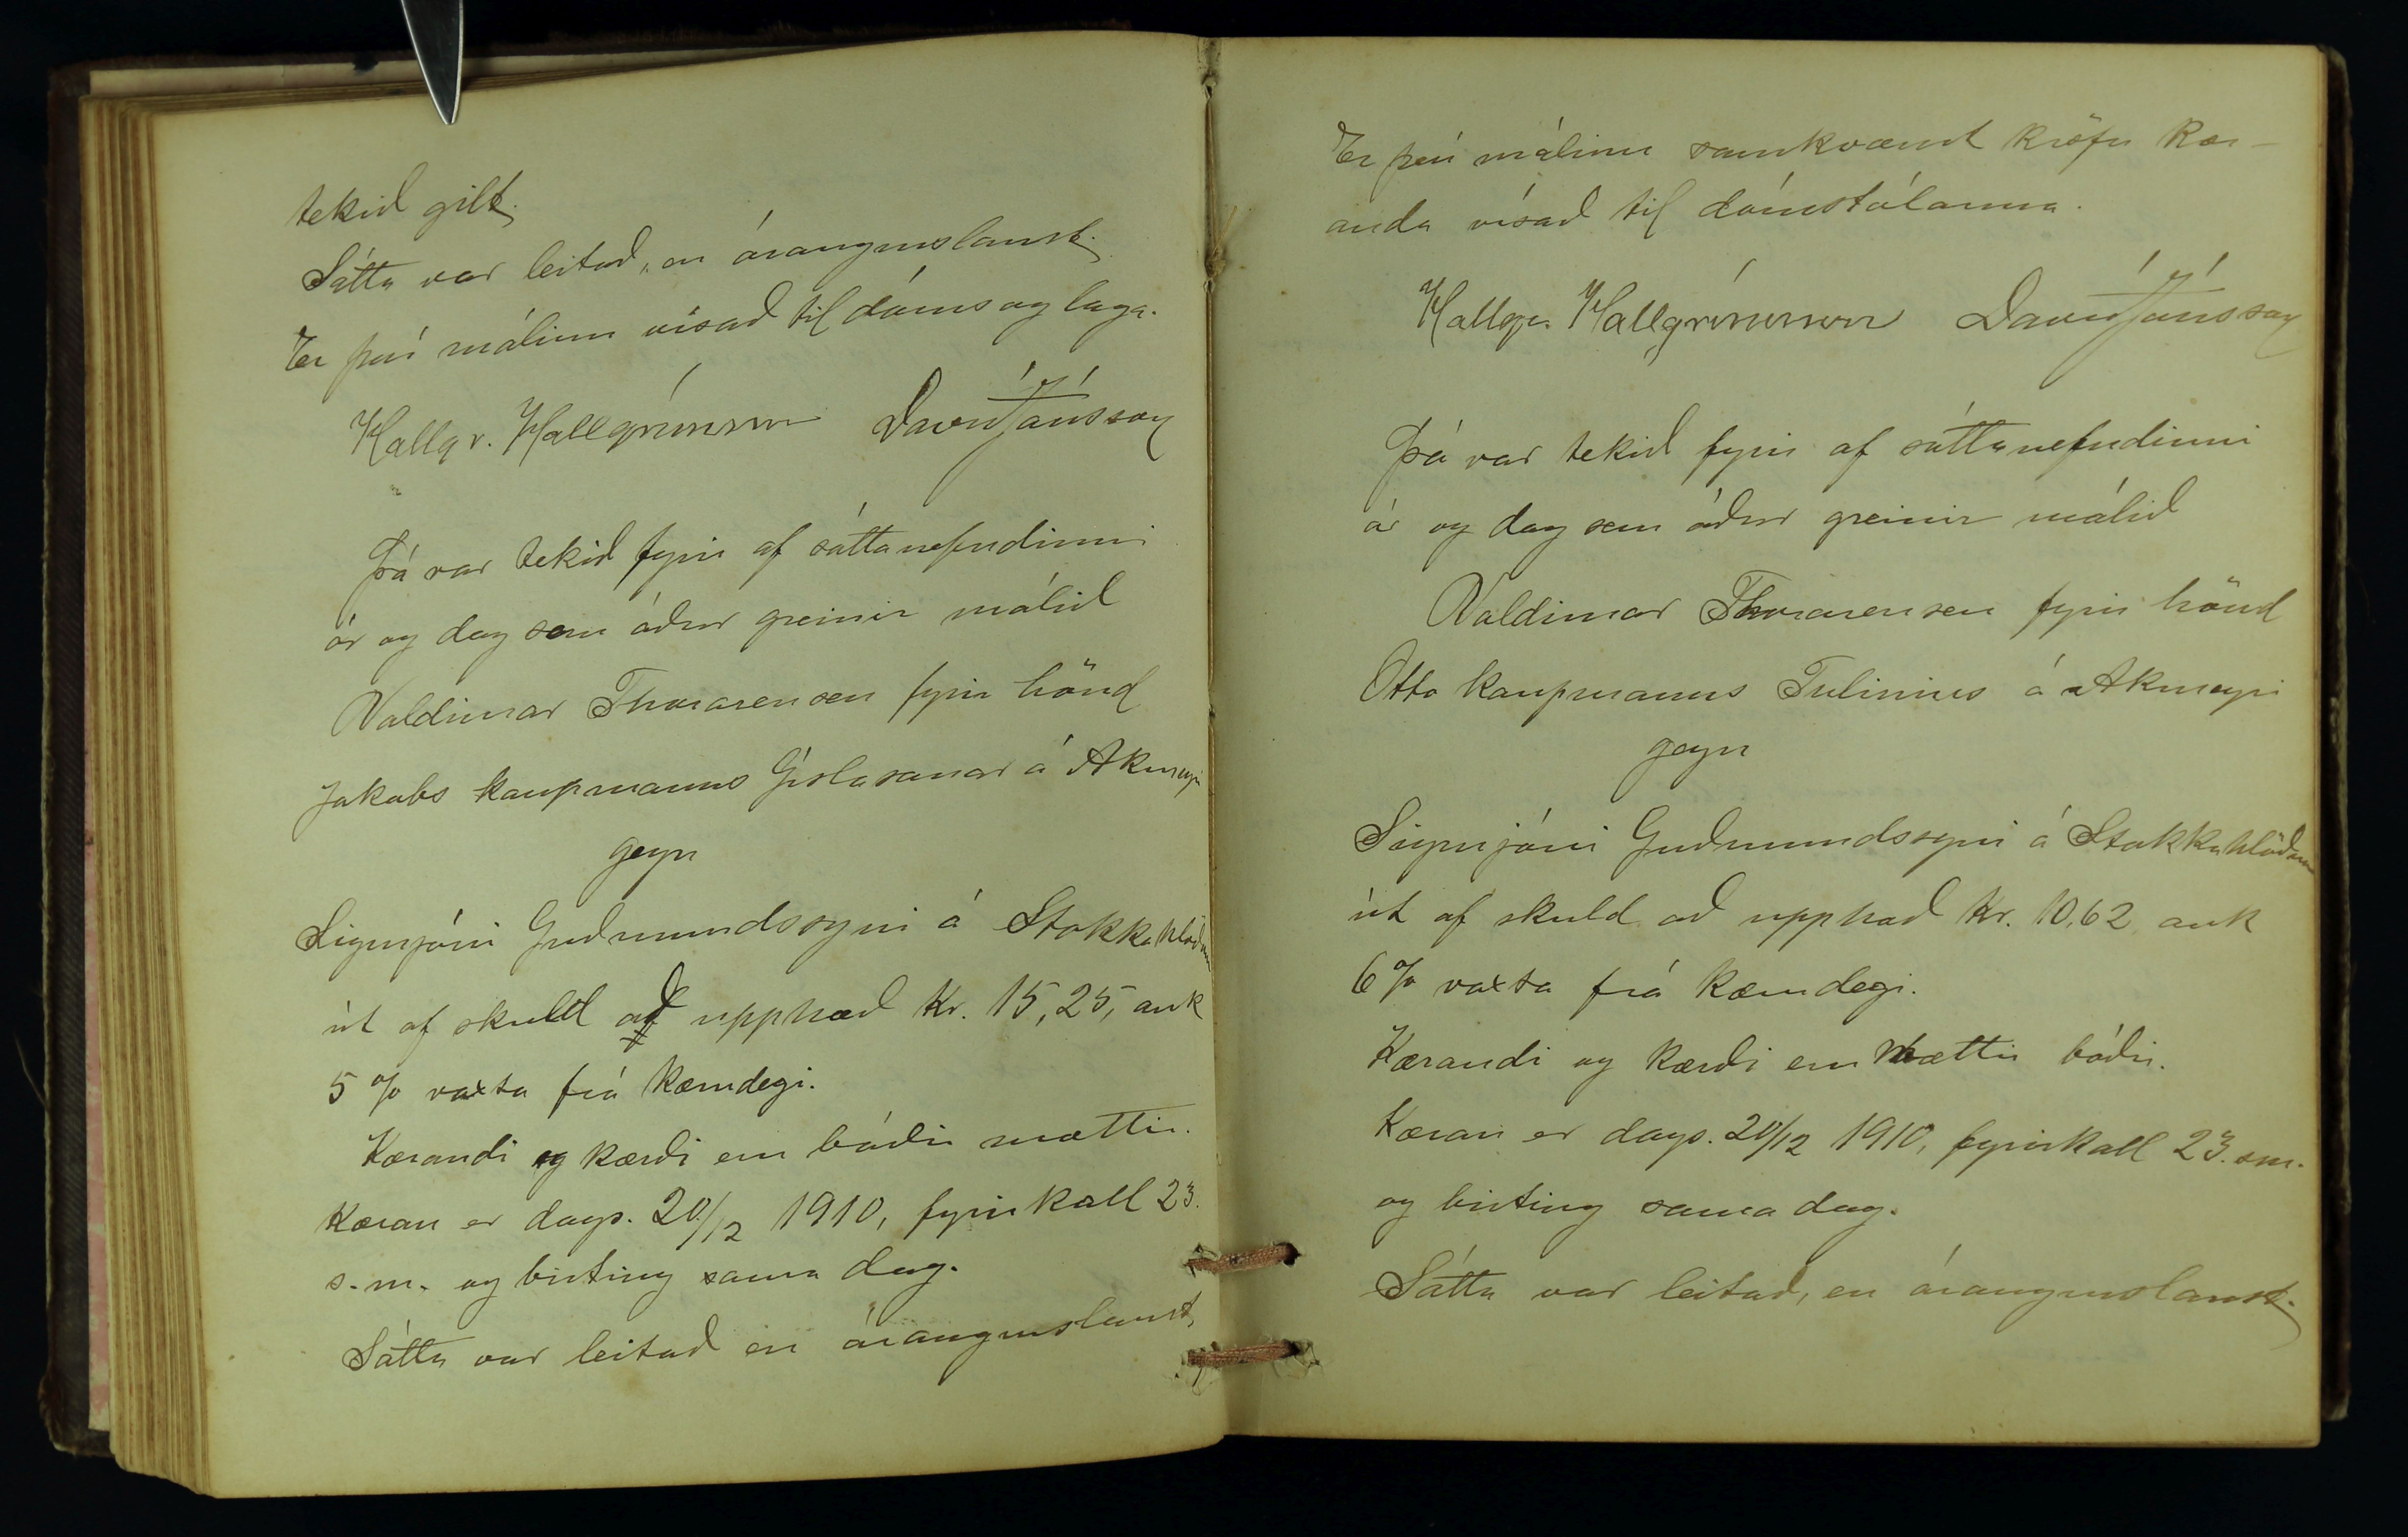 tekið gilt.
Sátta var leitað, en árangurslaust.
Er því málinu vísað til dóms og laga.
Hallgr. Hallgrímsson Davíð Jónsson
Þá var tekið fyrir af sáttanefndinni
ár og dag sem áður greinir málið
Valdimar Thorarensen fyrir hönd
Jakobs kaupmanns Gíslasonar á Akureyri
gegn
Sigurjóni Guðmundssyni á Stokkahlöðum
út af skuld að upphæð Kr. 15,25, auk
5 % vaxta frá kærudegi.
Kærandi og kærði eru báðir mættir.
Kæran er dags. 20/12 1910, fyrirkall 23.
s.m. og birting sama dag.
Sátta var leitað en árangurslaust,
Er því málinu samkvæmt kröfu kær-
anda vísað til dómstólanna.
Hallgr. Hallgrímsson Davíð Jónsson
Þá var tekið fyrir af sáttanefndinni
ár og dag sem áður greinir málið
Valdimar Thorarensen fyrir hönd
Otto kaupmanns Tulinius á Akureyri
gegn
Sigurjóni Guðmundssyni á Stokkahlöðum
út af skuld að upphæð Kr. 10,62 auk
6 % vaxta frá kærudegi.
Kærandi og kærði eru mættir báðir.
Kæran er dags. 20/12 1910, fyrirkall 23. s.m.
og birting sama dag.
Sátta var leitað, en árangurslaust.